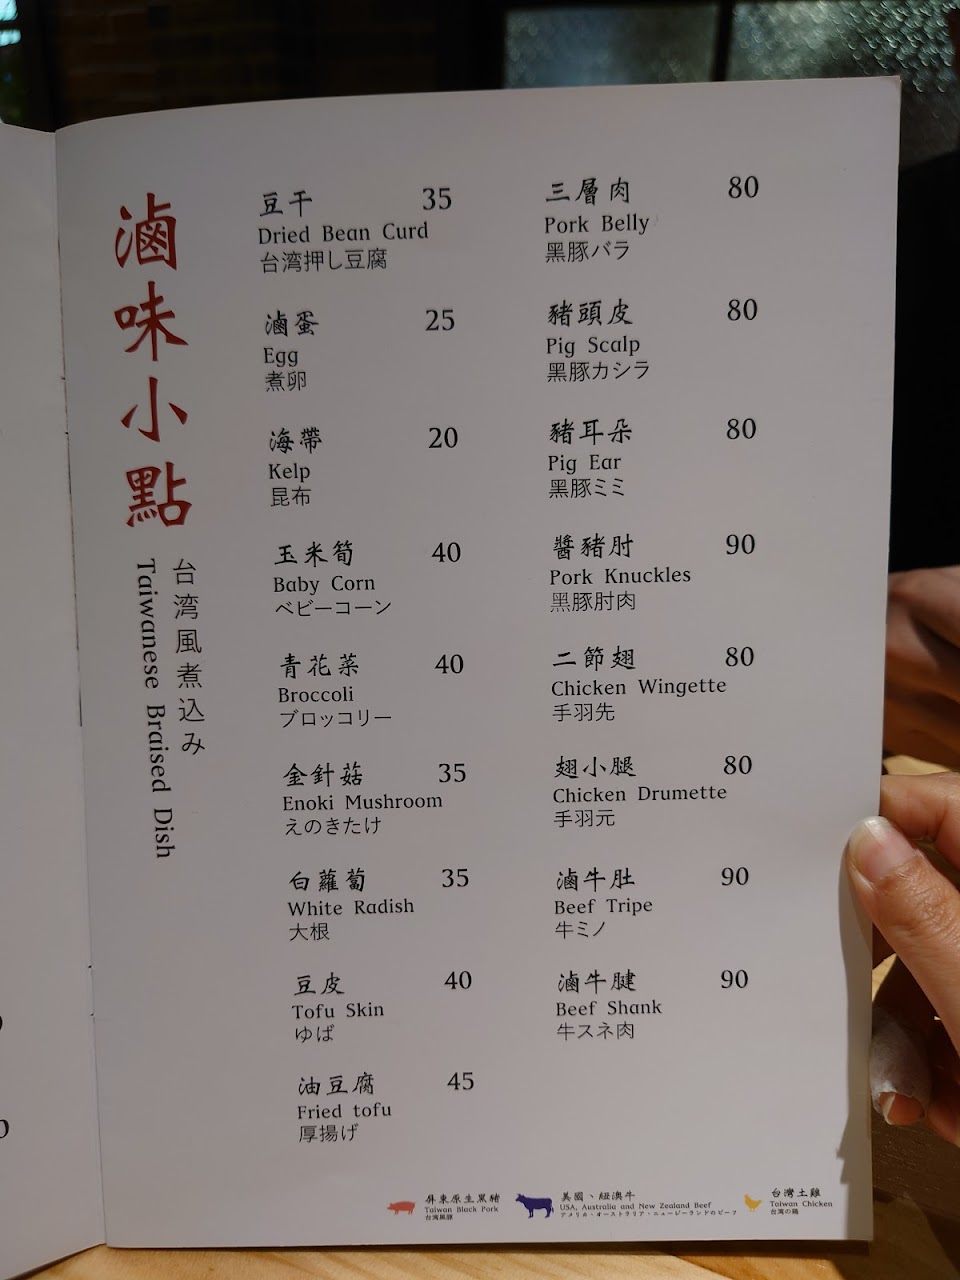 滷味小點
台湾風煮込み
Taiwanese Braised Dish
豆干 35
Dried Bean Curd
台湾押し豆腐
滷蛋 25
Egg
煮卵
海帶 20
Kelp
昆布
玉米筍 40
Baby Corn
ベビーコーン
青花菜 40
Broccoli
ブロッコリー
金針菇 35
Enoki Mushroom
えのきたけ
白蘿蔔 35
White Radish
大根
豆皮 40
Tofu Skin
ゆば
油豆腐 45
Fried tofu
厚揚げ
三層肉 80
Pork Belly
黑豚バラ
豬頭皮 80
Pig Scalp
黑豚カシラ
豬耳朵 80
Pig Ear
黑豚ミミ
醬豬肘 90
Pork Knuckles
黑豚肘肉
二節翅 80
Chicken Wingette
手羽先
翅小腿 80
Chicken Drumette
手羽元
滷牛肚 90
Beef Tripe
牛ミノ
滷牛腱 90
Beef Shank
牛スネ肉
屏東原生黑豬
Taiwan Black Pork
台湾黒豚
美國、紐澳牛
USA, Australia and New Zealand Beef
アメリカ・オーストラリア・ニュージーランドのビーフ
台灣土雞
Taiwan Chicken
台湾の鶏